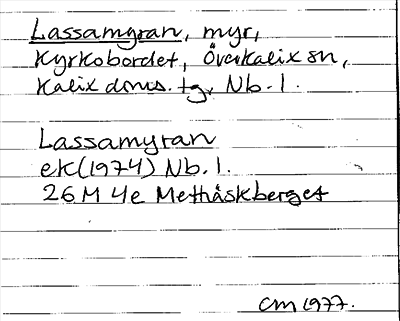 Lassamyran, myr,
Kyrkobordet, Överkalix sn,
Kalix doms. tg, Nb. l.
Lassamyran
ek(1974) Nb. l.
26 M 4e Methåskberget
CM 1977.